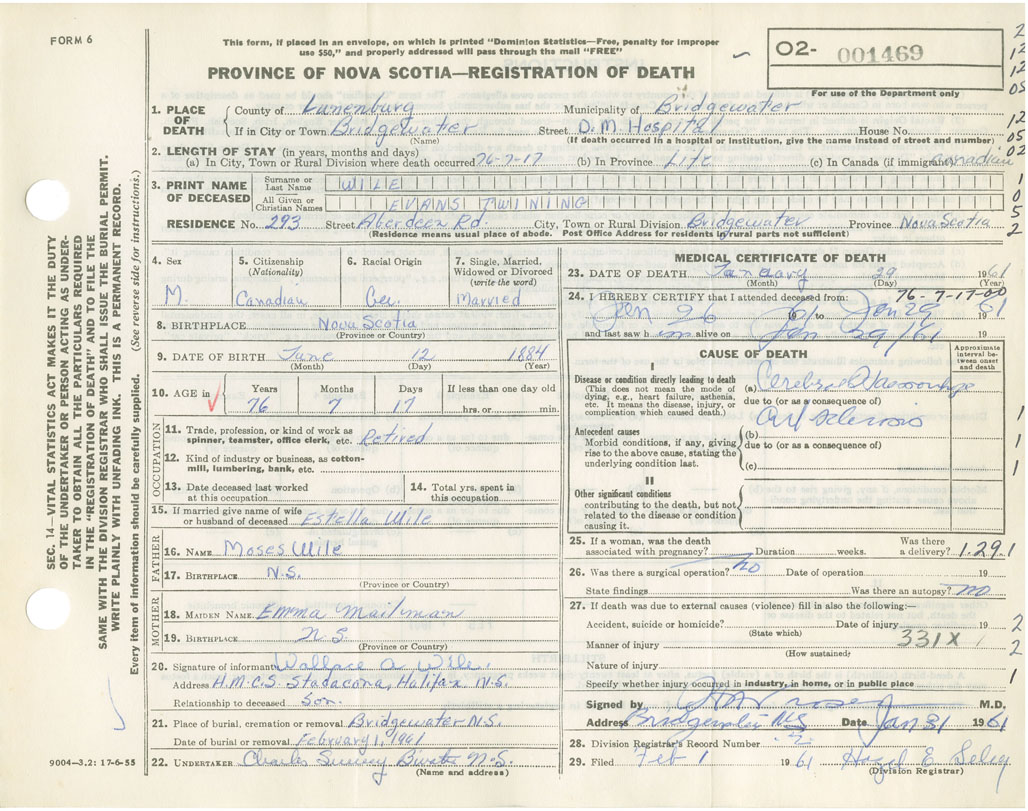 FORM 6
This form, if placed in an envelope, on which is printed "Dominion Statistics—Free, penalty for improper
use $50," and properly addressed will pass through the mail "FREE"
O2- 001469
For use of the Department only
PROVINCE OF NOVA SCOTIA—REGISTRATION OF DEATH
1. PLACE OF DEATH County of Lunenburg Municipality of Bridgewater
If in City or Town Bridgewater Street D. M. Hospital House No.
(Name) (If death occurred in a hospital or institution, give the name instead of street and number)
2. LENGTH OF STAY (in years, months and days)
(a) In City, Town or Rural Division where death occurred 76-7-17 (b) In Province Life (c) In Canada (if immigrant) Canadian
3. PRINT NAME OF DECEASED
Surname or Last Name WILE
All Given or Christian Names EVANS TWINING
RESIDENCE No. 293 Street Aberdeen Rd. City, Town or Rural Division Bridgewater Province Nova Scotia
(Residence means usual place of abode. Post Office Address for residents in rural parts not sufficient)
4. Sex M.
5. Citizenship (Nationality) Canadian
6. Racial Origin Ger.
7. Single, Married, Widowed or Divorced (write the word) Married
8. BIRTHPLACE Nova Scotia
(Province or Country)
9. DATE OF BIRTH June 12 1884
(Month) (Day) (Year)
10. AGE in Years 76 Months 7 Days 17 If less than one day old hrs. or min.
OCCUPATION
11. Trade, profession, or kind of work as spinner, teamster, office clerk, etc. Retired
12. Kind of industry or business, as cotton-mill, lumbering, bank, etc.
13. Date deceased last worked at this occupation
14. Total yrs. spent in this occupation
15. If married give name of wife or husband of deceased Estella Wile
FATHER
16. NAME Moses Wile
17. BIRTHPLACE N.S.
(Province or Country)
MOTHER
18. MAIDEN NAME Emma Mailman
19. BIRTHPLACE N.S
(Province or Country)
20. Signature of informant Wallace A. Wile.
Address H.M.C.S Stadacona, Halifax N.S.
Relationship to deceased Son.
21. Place of burial, cremation or removal Bridgewater N.S.
Date of burial or removal February 1, 1961
22. UNDERTAKER Charles N.S.
(Name and address)
MEDICAL CERTIFICATE OF DEATH
23. DATE OF DEATH January 29 1961
(Month) (Day) (Year)
76-7-17-00
24. I HEREBY CERTIFY that I attended deceased from:
Jan 26 19 61 to Jan 29 19 61
and last saw h im alive on Jan 29/61 19
CAUSE OF DEATH
Approximate interval between onset and death
I
Disease or condition directly leading to death
(This does not mean the mode of dying, e.g., heart failure, asthenia, etc. It means the disease, injury, or complication which caused death.)
(a) Cerebral Haemorrhage
due to (or as a consequence of)
Art Sclerosis
Antecedent causes
Morbid conditions, if any, giving rise to the above cause, stating the underlying condition last.
(b)
due to (or as a consequence of)
(c)
II
Other significant conditions
contributing to the death, but not related to the disease or condition causing it.
25. If a woman, was the death associated with pregnancy? Duration weeks. Was there a delivery? 1.29.1
26. Was there a surgical operation? no Date of operation 19
State findings Was there an autopsy? no
27. If death was due to external causes (violence) fill in also the following:—
Accident, suicide or homicide? Date of injury 19
(State which)
Manner of injury 331X
(How sustained)
Nature of injury
Specify whether injury occurred in industry, in home, or in public place
Signed by M.D.
Address Bridgewater NS Date Jan 31 1961
28. Division Registrar's Record Number
29. Filed Feb 1 1961 Hazel E.
(Division Registrar)
SEC. 14—VITAL STATISTICS ACT MAKES IT THE DUTY
OF THE UNDERTAKER OR PERSON ACTING AS UNDER-
TAKER TO OBTAIN ALL THE PARTICULARS REQUIRED
IN THE "REGISTRATION OF DEATH" AND TO FILE THE
SAME WITH THE DIVISION REGISTRAR WHO SHALL ISSUE THE BURIAL PERMIT.
WRITE PLAINLY WITH UNFADING INK. THIS IS A PERMANENT RECORD.
Every item of information should be carefully supplied. (See reverse side for instructions.)
9004—3.2: 17-6-55
2
12
12
05
12
05
02
1
0
5
2
1
1
1
2
2
1